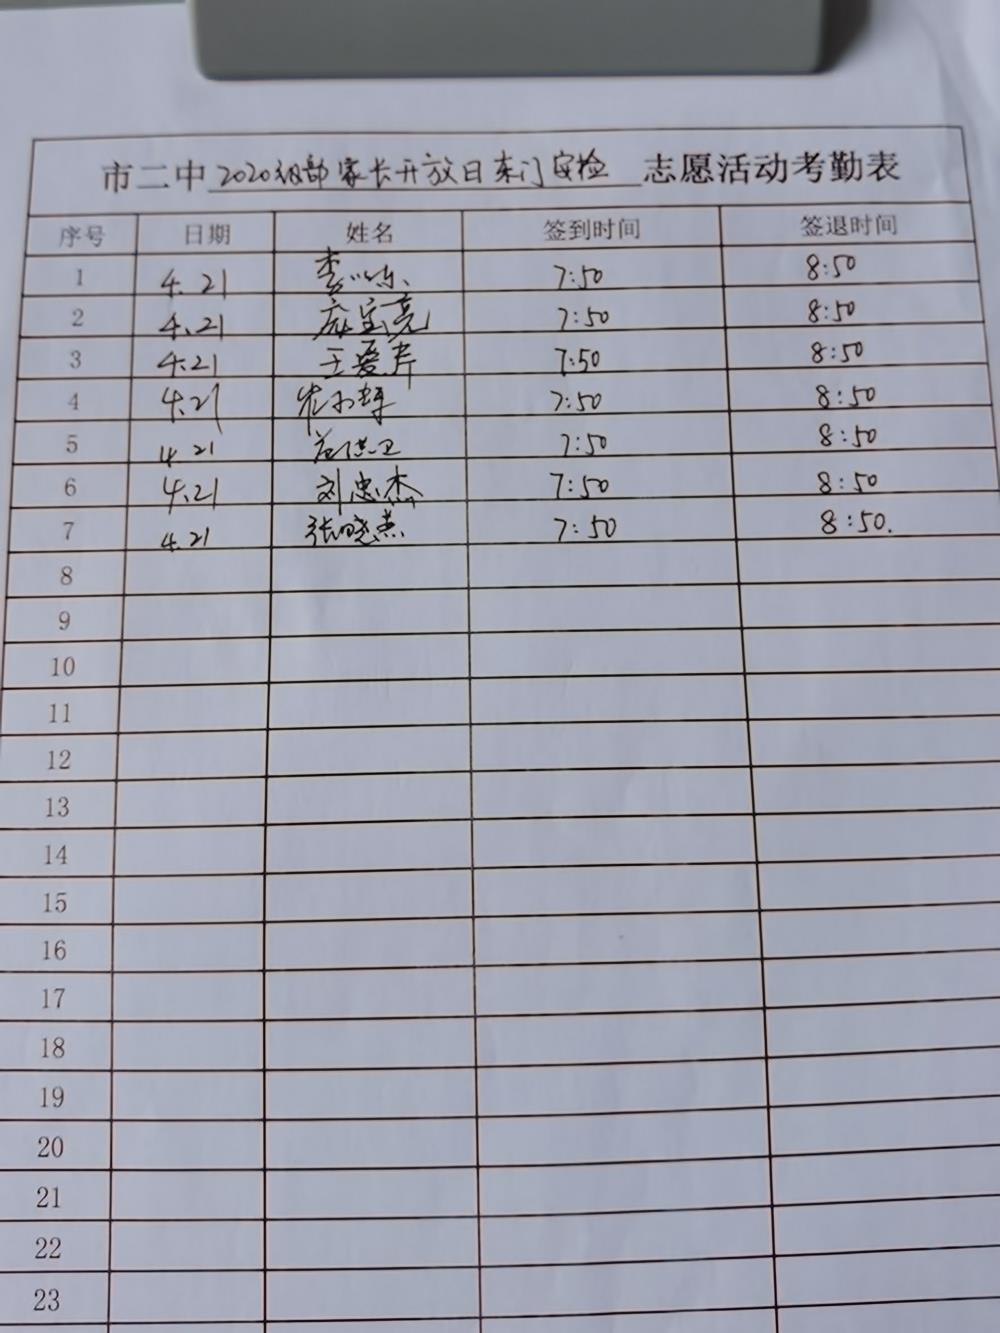 市二中2020级部家长开放日东门安检志愿活动考勤表
序号 日期 姓名 签到时间 签退时间
1 4.21 7:50 8:50
2 4.21 庞宝亮 7:50 8:50
3 4.21 王爱芹 7:50 8:50
4 4.21 7:50 8:50
5 4.21 7:50 8:50
6 4.21 刘忠杰 7:50 8:50
7 4.21 张晓燕 7:50 8:50.
8
9
10
11
12
13
14
15
16
17
18
19
20
21
22
23